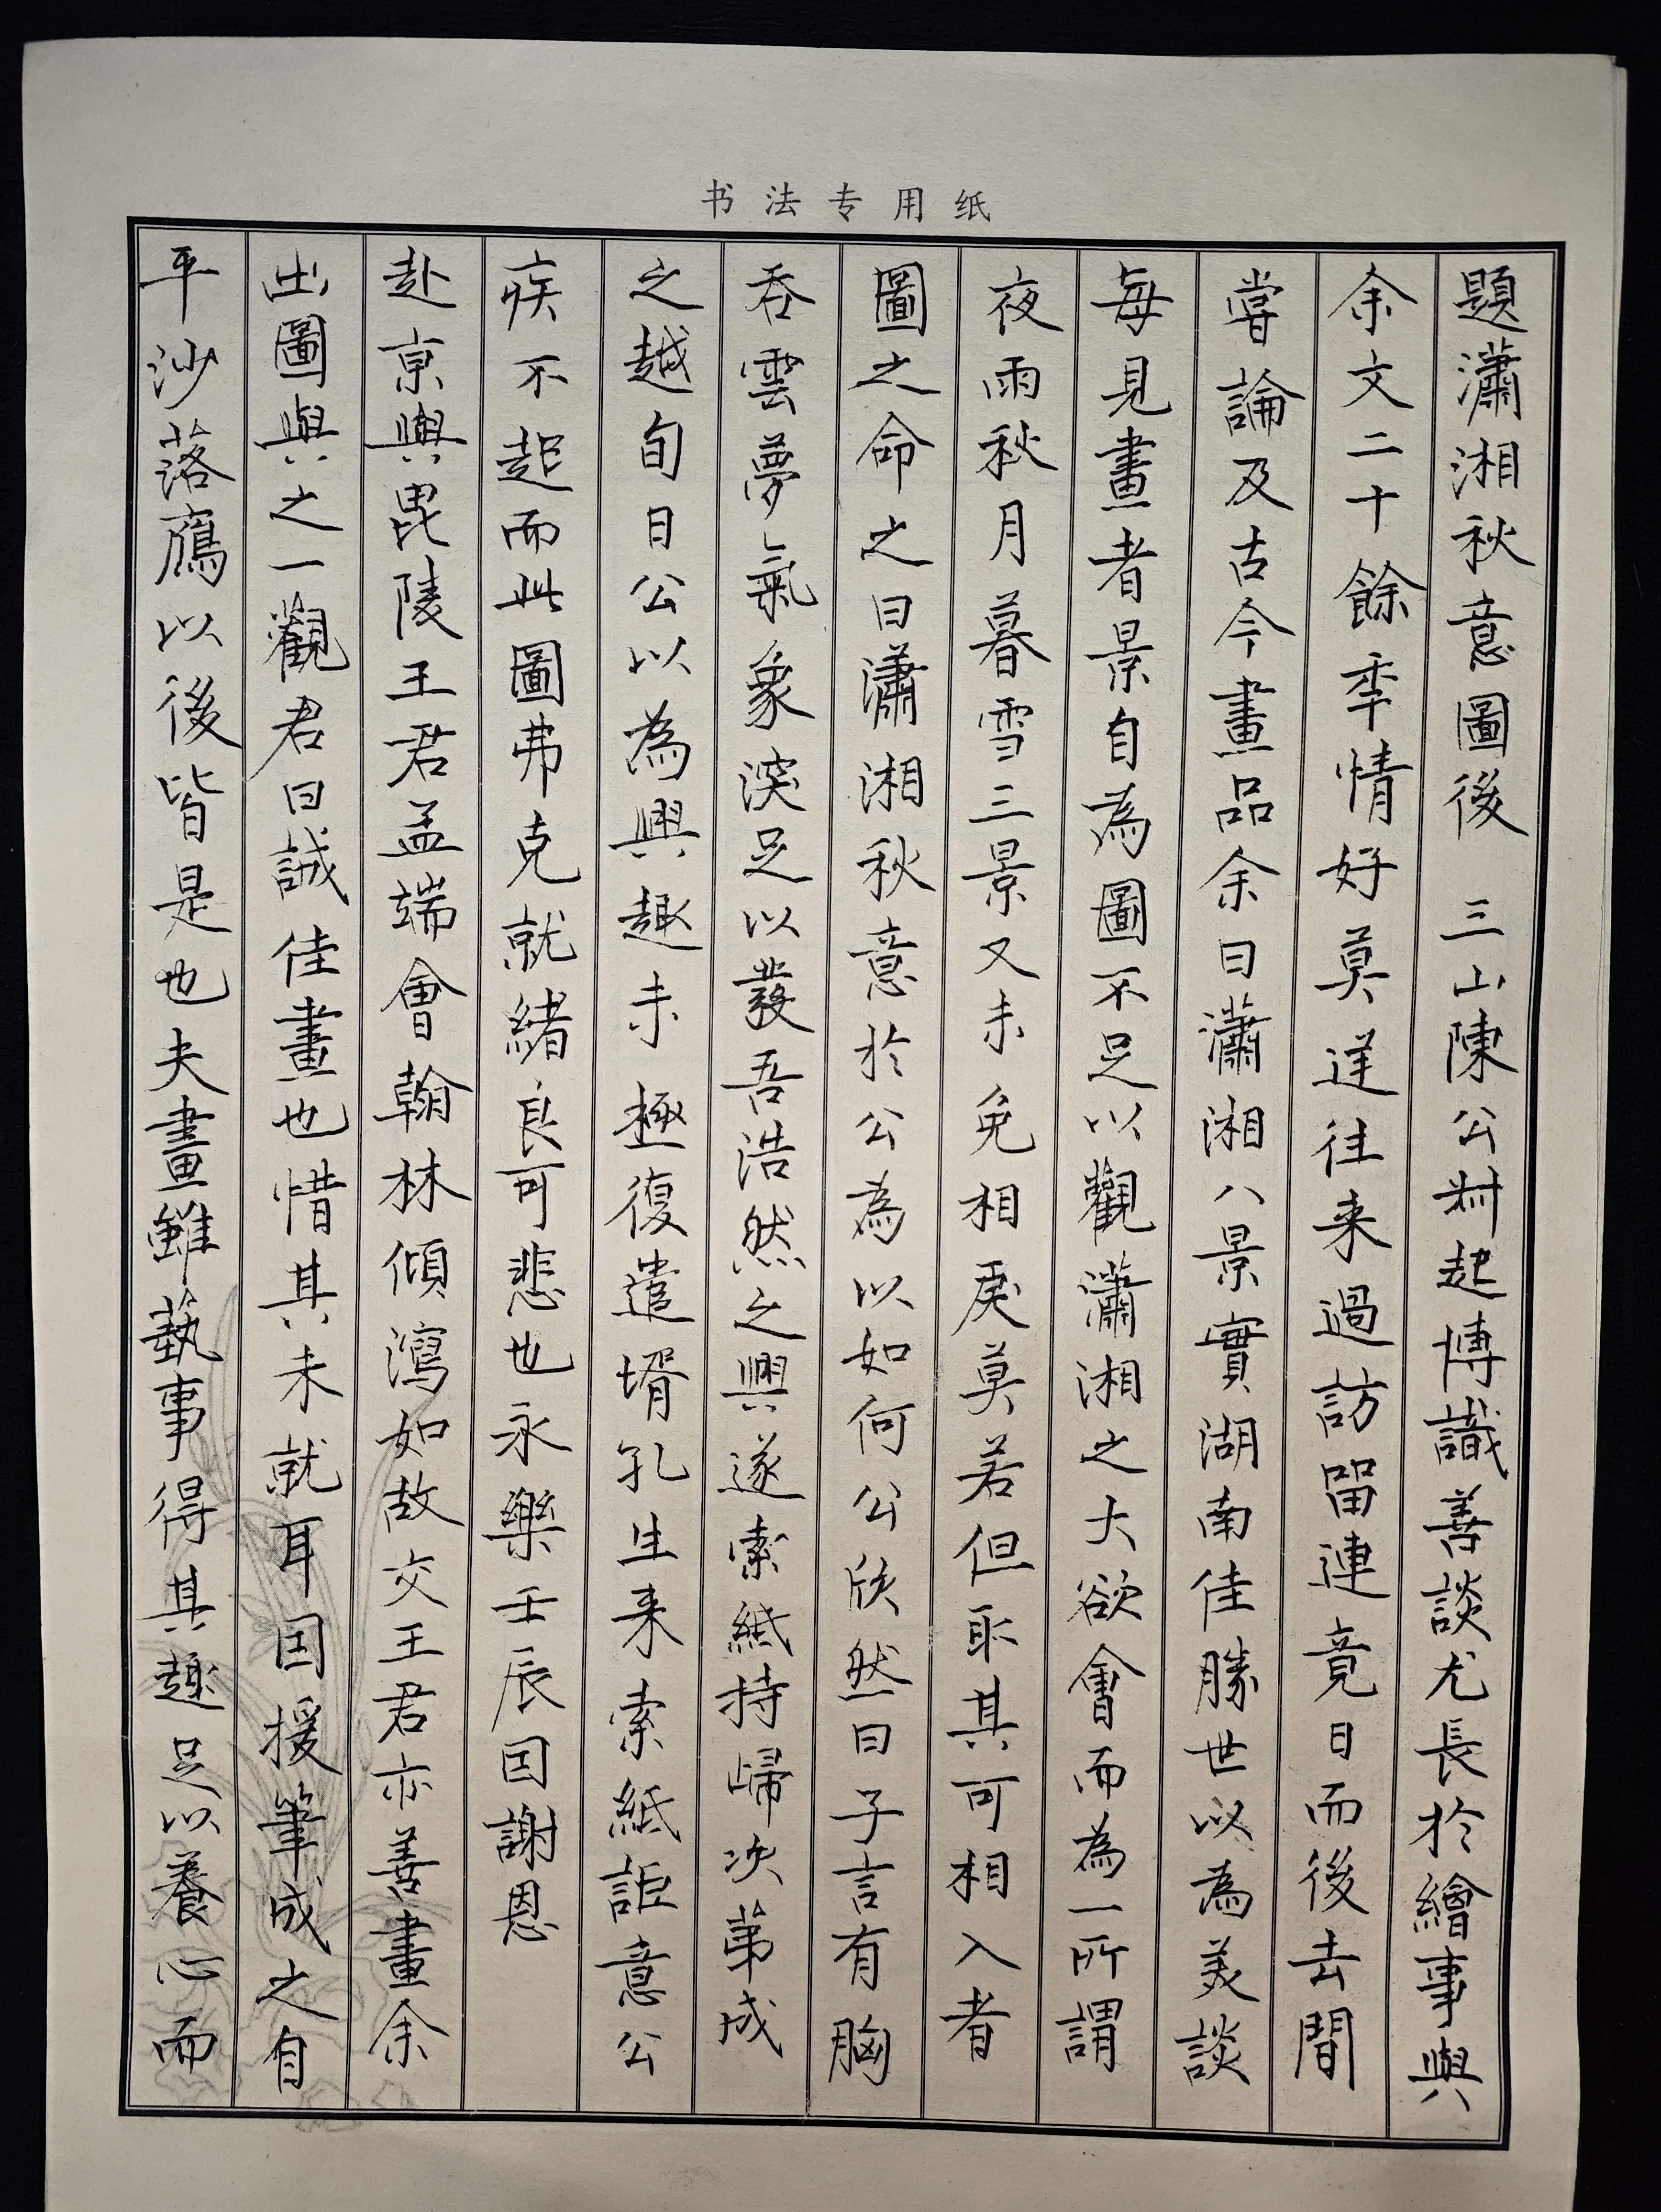 书法专用纸
題瀟湘秋意圖後 三山陳公叔起博識善談尤長於繪事與
余文二十餘年情好莫逆往来過訪留連竟日而後去間
嘗論及古今畫品余曰瀟湘八景實湖南佳勝世以為美談
每見畫者景自為圖不足以觀瀟湘之大欲會而為一所謂
夜雨秋月暮雪三景又未免相戾莫若但取其可相入者
圖之命之曰瀟湘秋意於公為以如何公欣然曰子言有胸
吞雲夢氣象浹足以發吾浩然之興遂索紙持歸次第成
之越旬日公以為興趣未極復遣壻孔生来索紙詎意公
疾不起而此圖弗克就緒良可悲也永樂壬辰因謝恩
赴京與毘陵王君孟端會翰林傾瀉如故交王君亦善畫余
出圖與之一觀君曰誠佳畫也惜其未就耳因援筆成之自
平沙落鴈以後皆是也夫畫雖藝事得其趣足以養心而